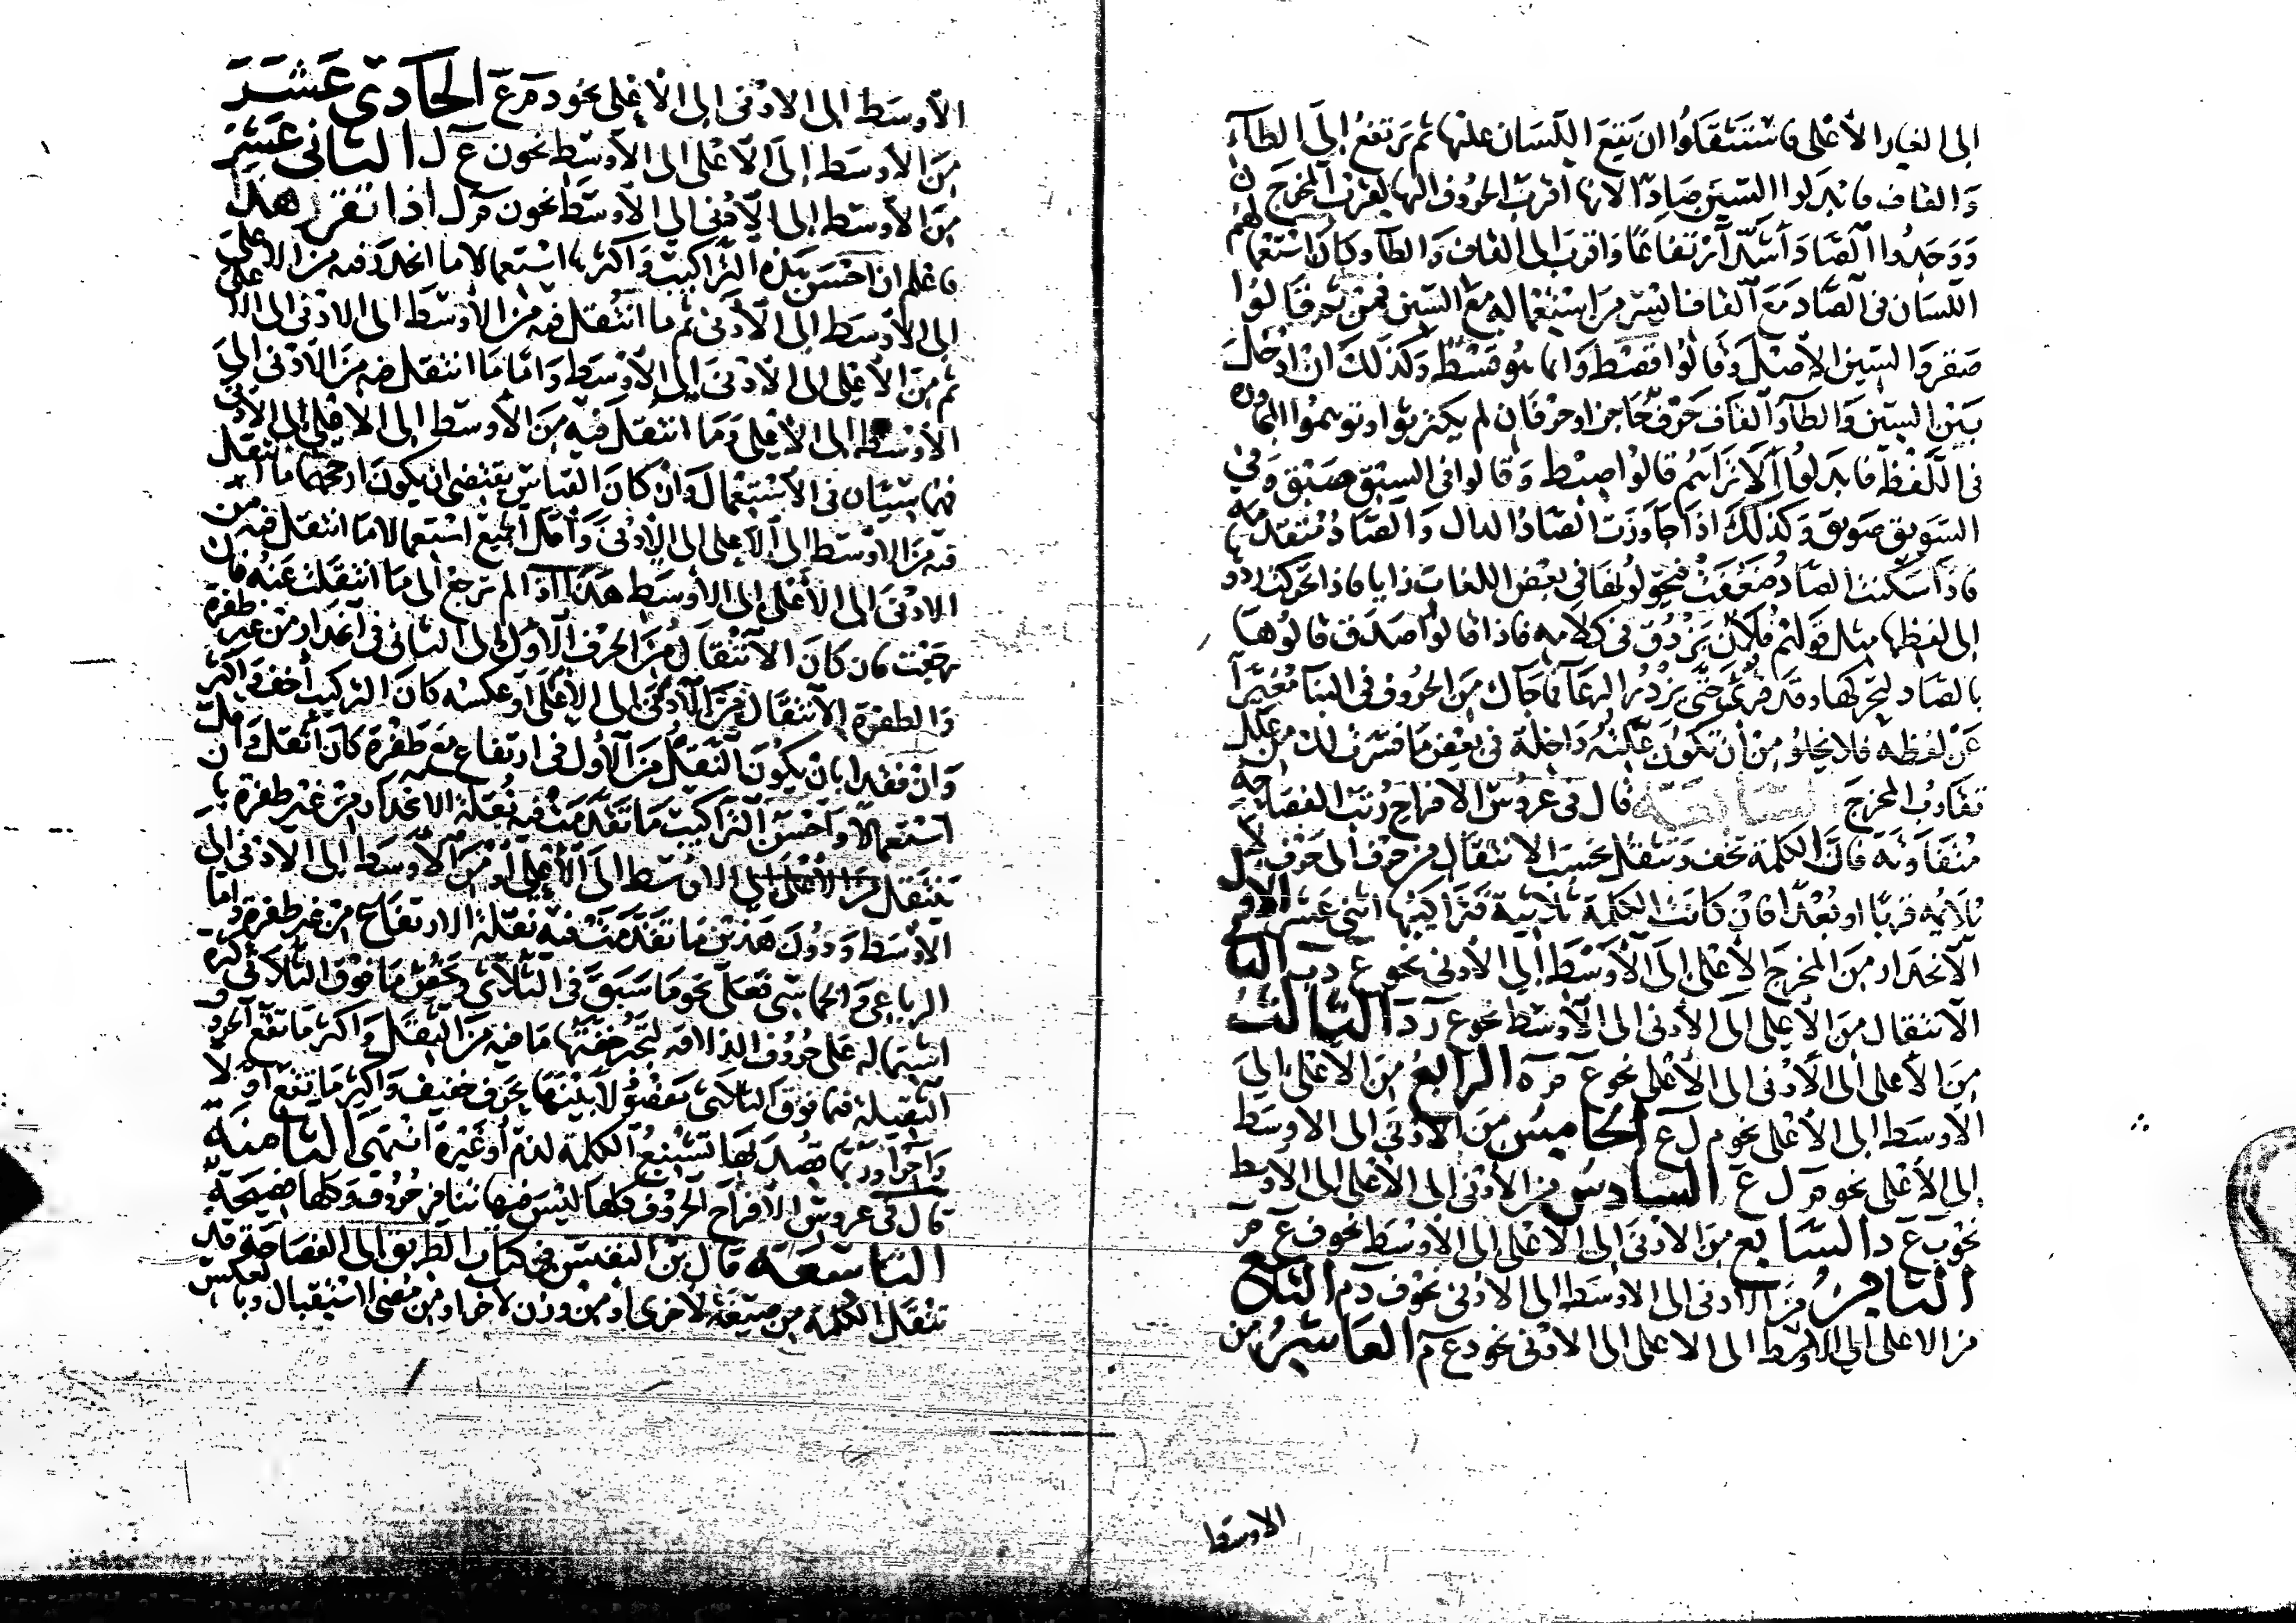 إلى الغار الأعلى فاستثقلوا ان يقع اللسان عليها ثم يرتفع إلى الطاء
والقاف فابدلوا السين صادا لانها اقرب الحروف اليها لقرب المخرج
ووجدوا الصاد أشد ارتفاعا واقرب الى القاف والطاء وكان استعمالهم
اللسان في الصاد مع القاف ايسر من استعماله مع السين فمن ثم قالوا
صقر والسين الاصل وقالوا قصط وانما هو قسط وكذلك ان ادخلت
بين السين والطاء والقاف حرف حاجز او حرفان لم يكترثوا وتوهموا المجاورة
في اللفظ فابدلوا ألا تراهم قالوا صبط وقالوا في السبق صبق وفي
السويق صويق وكذلك اذا جاوزت الصاد الدال والصاد متقدمة
فاذا سكنت الصاد ضعفت فيحولونها في بعض اللغات زايا فاذا تحركت ردوها
إلى لفظها مثل قولهم فلان يزدق في كلامه فاذا قالوا صدق قالوها
بالصاد لتحركها وقد قرئ حتى يزدر الرعاء فما جاك من الحروف في البنا مغيرا
عن لفظه فلا يخلو من أن تكون علته داخلة في بعض ما فسرت لك من علل
تقارب المخرج السابعة قال في عروس الافراح رتب الفصاحة
متفاوتة فان الكلمة تخف وتثقل بحسب الانتقال من حرف الى حرف لا
يلائمه قربا او بعدا فان كانت الكلمة ثلاثية فتراكيبها اثنى عشر الأول
الانحدار من المخرج الأعلى إلى الأوسط إلى الأدنى نحو ع د ب الثاني
الانتقال من الأعلى إلى الأدنى إلى الأوسط نحو ع ر د الثالث
من الأعلى إلى الأدنى إلى الأعلى نحو ع م ه الرابع من الأعلى إلى
الأوسط إلى الأعلى نحو م ل ع الخامس من الأدنى إلى الاوسط
إلى الأعلى نحو م ل ع السادس من الأدنى إلى الأعلى إلى الأوسط
نحو ب ع د السابع من الادنى إلى الأعلى إلى الأوسط نحو ف ع م
الثامن من الأدنى إلى الأوسط إلى الأدنى نحو ف د م التاسع
من الاعلى إلى الاوسط إلى الاعلى إلى الادنى نحو د ع م العاشر من
الاوسط
الأوسط إلى الادنى إلى الأعلى نحو د م ع الحادي عشر
من الأوسط إلى الأعلى إلى الأوسط نحو ن ع ل الثاني عشر
من الأوسط إلى الأدنى إلى الأوسط نحو ن م ل اذا تقرر هذا
فاعلم ان احسن هذه التراكيب وأكثرها استعمالا ما انحدر فيه من الاعلى
إلى الأوسط إلى الأدنى ثم ما انتقل فيه من الأوسط إلى الادنى إلى الاعلى
ثم من الأعلى إلى الأدنى إلى الأوسط واما ما انتقل فيه من الأدنى إلى
الأوسط إلى الأعلى وما انتقل فيه من الأوسط إلى الاعلى إلى الأدنى
فهما سيان في الاستعمال وان كان القياس يقتضي ان يكون ارجحهما ما انتقل
فيه من الاوسط إلى الأعلى إلى الأدنى وأقل الجميع استعمالا ما انتقل فيه من
الادنى إلى الأعلى إلى الأوسط هذا اذا لم ترجع إلى ما انتقلت عنه فان
رجعت فان كان الانتقال من الحرف الأول إلى الثاني في انحدار من غير طفرة
والطفرة الانتقال من الأدنى إلى الأعلى أو عكسه كان التركيب أخف وأكثر
وان فقد بان يكون النقل من الأول في ارتفاع مع طفرة كان أثقل وأقل
استعمالا وأحسن التراكيب ما تقدمت فيه نقلة الانحدار من غير طفرة بان
ينتقل من الأعلى إلى الاوسط إلى الأعلى أو من الأوسط إلى الادنى إلى
الأوسط ودون هذين ما تقدمت فيه نقلة الارتفاع من غير طفرة واما
الرباعي والخماسي فعلى نحو ما سبق في الثلاثي ويخص ما فوق الثلاثي كثرة
اشتماله على حروف الذلاقة لتجبر خفتها ما فيه من الثقل وأكثر ما تقع الحروف
الثقيلة فيما فوق الثلاثي مفصولا بينها بحرف خفيف وأكثر ما تقع أولا
وآخرا وربما قصد بها تشنيع الكلمة لذم أو غيره انتهى الثامنة
قال في عروس الافراح الحروف كلها ليس فيها تنافر حروف وكلها فصيحة
التاسعة قال بن النفيس في كتاب الطريق إلى الفصاحة قد
تنقل الكلمة من صيغة لأخرى او من وزن لآخر او من مضي الى استقبال وبالعكس